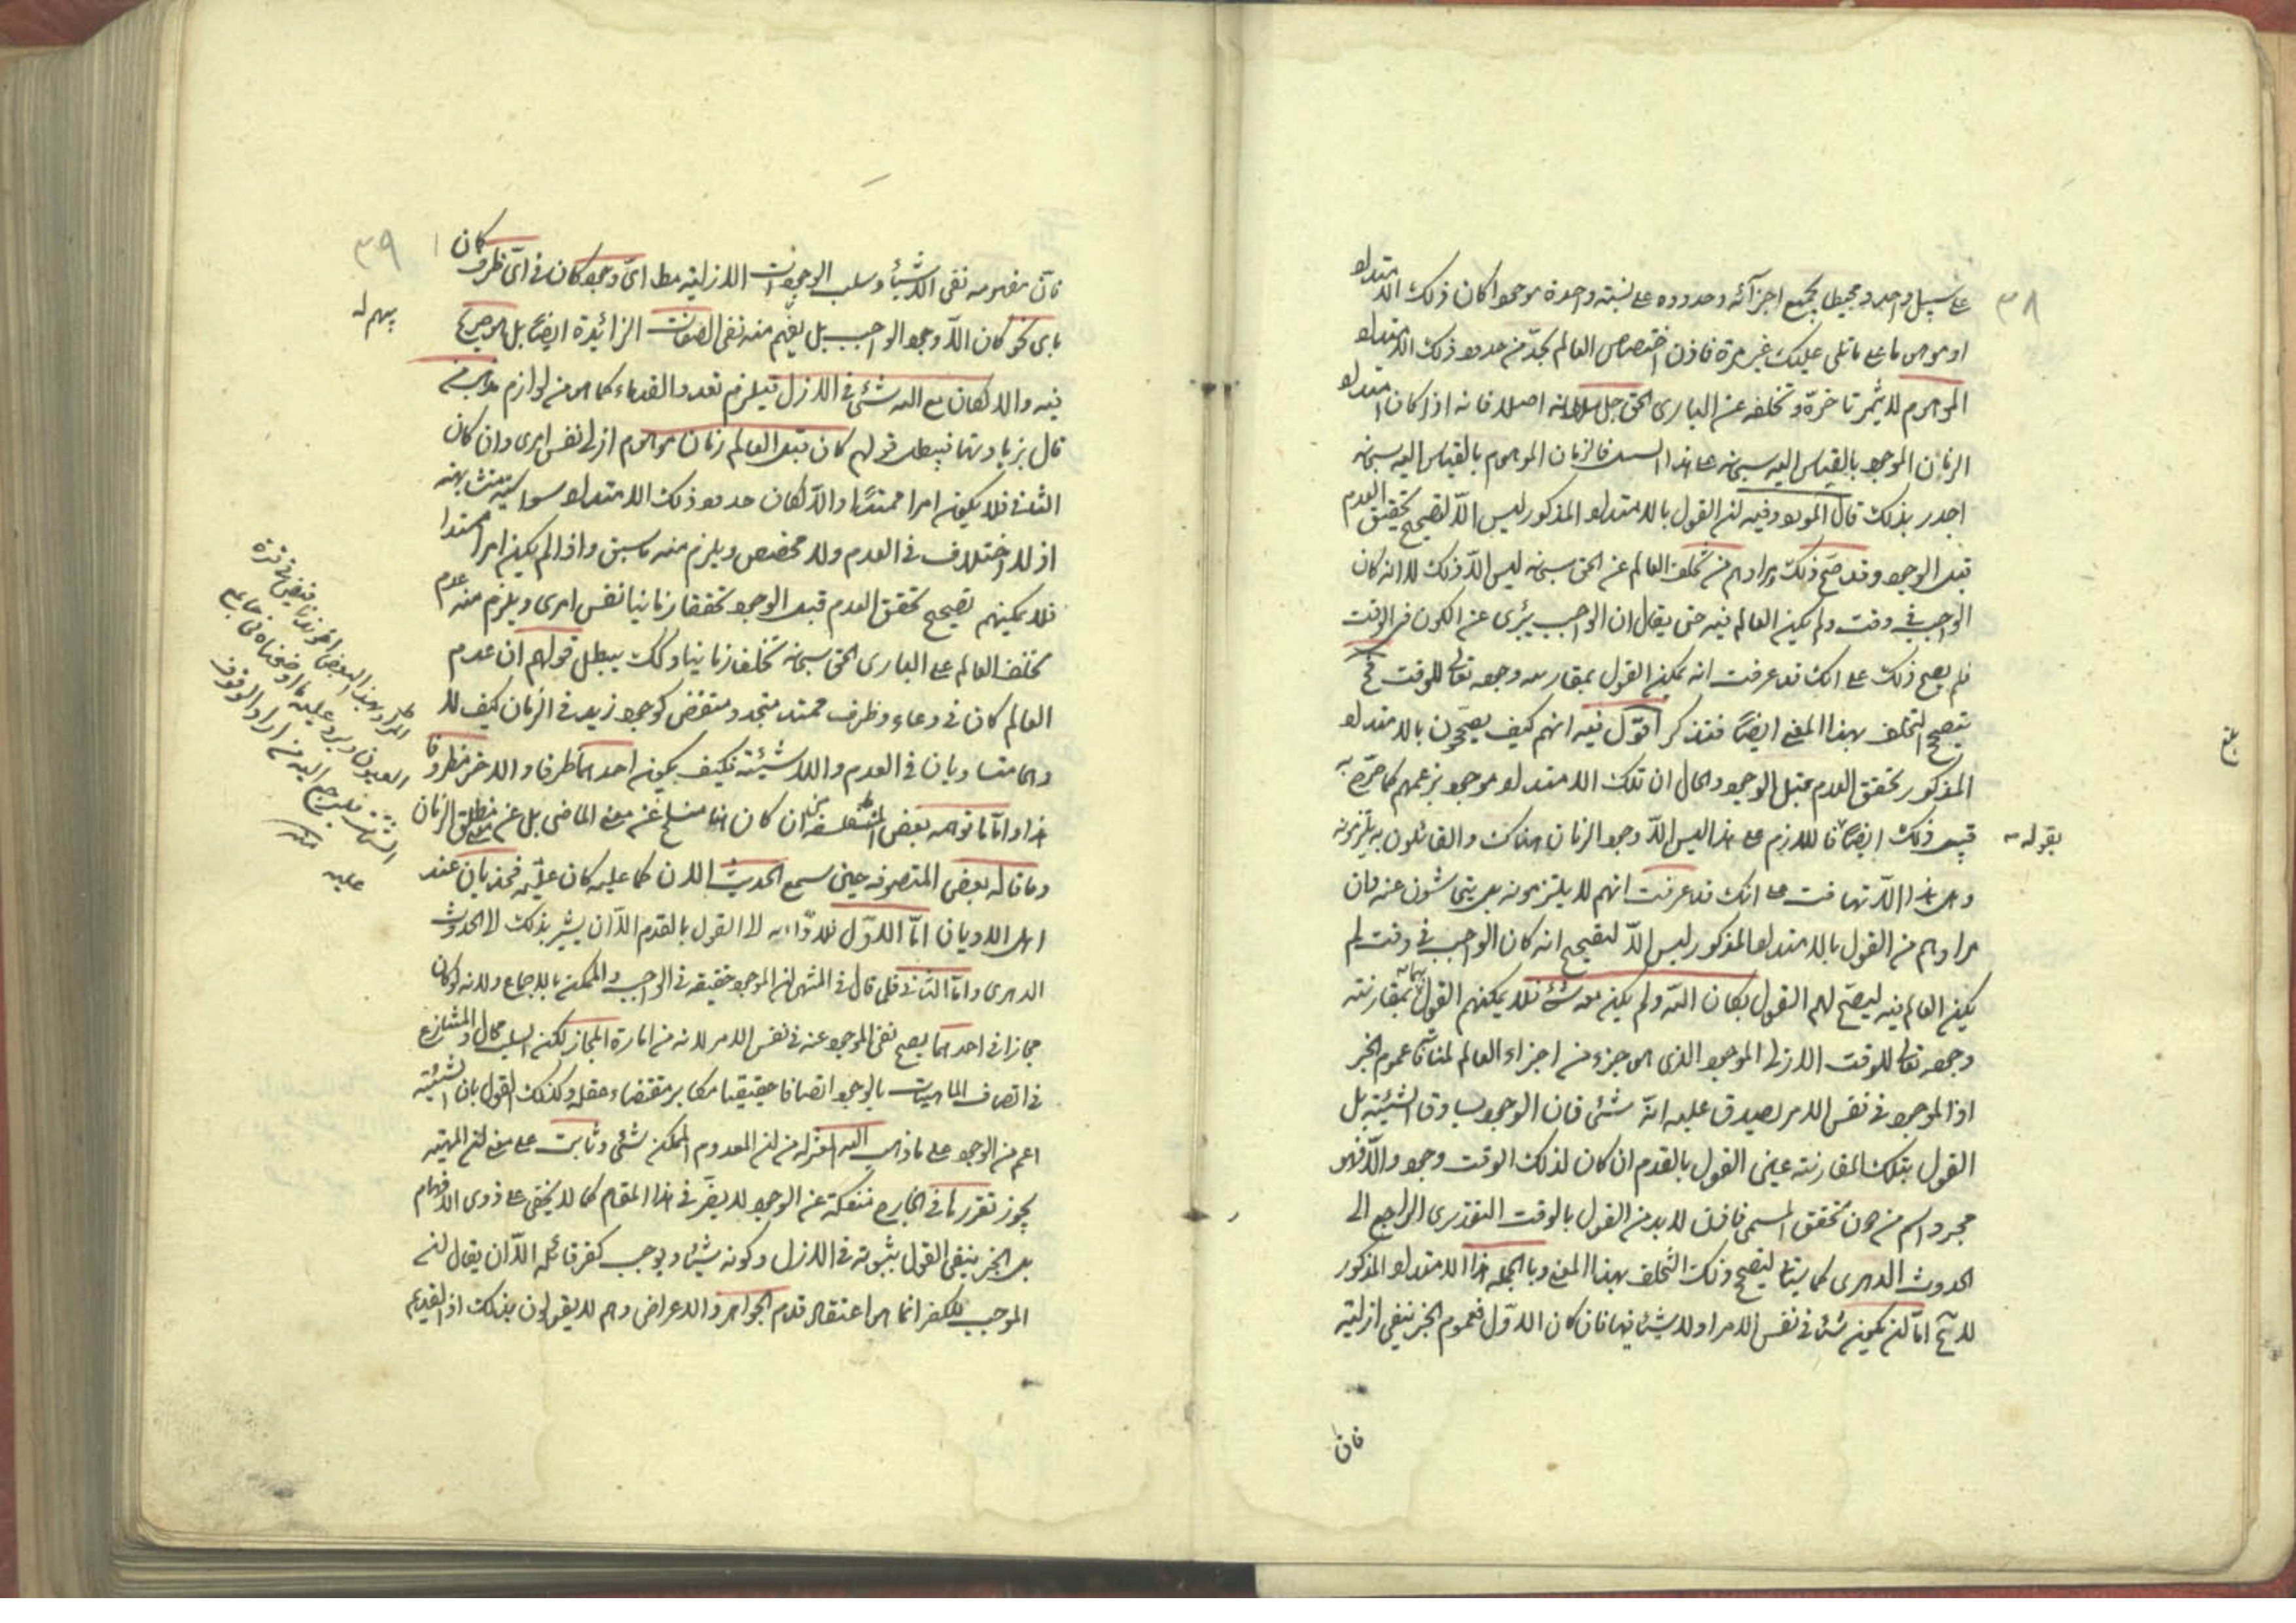 ٣٨
على سبيل واحد ومحيطا بجميع اجزآئه وحدوده على نسبته واحدة موجودا كان ذلك الامتداد
او موهوما على ما تلى عليك غير مرة فاذن اختصاص العالم بحدّ من حدود ذلك الامتداد
الموهوم لا يثمر تاخرّه وتخلفه عن البارى الحق جل سلطانه اصلا فانه اذا كان امتداد
الزمان الموجود بالقياس اليه سبحانه على هذا السبيل فالزمان الموهوم بالقياس اليه سبحانه
اجدر بذلك قال المورد وفيه ان القول بالامتداد المذكور ليس الّا لتصحيح تحقق العدم
قبل الوجود وقد صحّ ذلك ومرادهم من تخلف العالم عن الحق سبحانه ليس الّا ذلك لا انه كان
الواجب فى وقت ولم يكن العالم فيه حتى يقال ان الواجب برى عن الكون فى الوقت
فلم يصح ذلك على انك قد عرفت انه يمكن القول بمقارنة وجوده تعالى للوقت فح
يتصحح التخلف بهذا المعنى ايضاً فتذكر اقول فيه انهم كيف يصححون بالامتداد
المذكور تحقق العدم قبل الوجود والحال ان تلك الامتداد موجود بزعمهم كما صرّح به
بقوله
قبيل ذلك ايضاً فاللازم على هذا ليس الّا وجود الزمان هناك والقائلون به يلتزمونه
وهل هذا الا تهافت على انك قد عرفت انهم لا يلتزمونه بل يتحاشون عنه فان
مرادهم من القول بالامتداد المذكور ليس الّا لتصحيح انه كان الواجب فى وقت لم
يكن العالم فيه ليصحّ لهم القول بكان الله ولم يكن معه شئ فلا يمكنهم القول بمقارنة
وجوده تعالى للوقت الازلى الموجود الذى هو جزء من اجزاء العالم لمنافاة عموم الخبر
اذ الموجود فى نفس الامر يصدق عليه انّه شئ فان الوجود يساوق الشيئية بل
القول بتلك المقارنة عين القول بالقدم ان كان لذلك الوقت وجود والّا فهو
مجرد اسم من دون تحقق المسمى فاذن لا بد من القول بالوقت التقديرى الراجع الى
الحدوث الدهرى كما سيتلى ليصح ذلك التخلف بهذا المعنى وبالجملة هذا الامتداد المذكور
لا يخ امّا ان يكون شئا فى نفس الامر او لا شيئا فيها فان كان الاوّل فعموم الخبر ينفى ازليته
فان
٣٩
فانّ مفهومه نفى الاشياء وسلب الوجودات الازلية مطلقا اىّ وجود كان فى اىّ ظرف كان
باى نحو كان الّا وجود الواجب بل يفهم منه نفى الصفات الزائدة ايضاً بل هو صريح
فيه والا لكان مع الله شئ فى الازل فيلزم تعدد القدماء كما هو من لوازم مذهب من
قال بزيادتها فيبطل قولهم كان قبل العالم زمان موهوم ازلى نفس امرى وان كان
الثانى فلا يكون امرا ممتدّا والّا لكان حدود ذلك الامتداد سواسية متشابهة
اذ لا اختلاف فى العدم ولا مخصص ويلزم منه ما سبق واذا لم يكن امرا ممتدا
فلا يمكنهم تصحيح تحقق العدم قبل الوجود تحققا زمانيا نفس امرى ويلزم منه عدم
تخلف العالم على البارى الحق سبحانه تخلفا زمانيا وكك يبطل قولهم ان عدم
العالم كان فى وعاء وظرف ممتد متجدد متقضى كوجود زيد فى الزمان كيف لا
وهما متساويان فى العدم واللاشيئية فكيف يكون احدهما ظرفا والاخر مظروفا
هذا وامّا ما توهمه بعض المتفلسفة ان كان هنا منسلخ عن معنى الماضى بل عن مطلق الزمان
وما قاله بعض المتصوفة حين سمع الحديث الان كما عليه كان عليه فهذيان عند
اهل الاديان امّا الاوّل فلادّائه الى القول بالقدم الّا ان يشير بذلك الى الحدوث
الدهرى وامّا الثانى فلى قال فى المنتهى ان الموجود حقيقة فى الواجب والممكن بالاجماع ولانه لو كان
مجازا فى احدهما يصح نفى الموجود عنه فى نفس الامر لانه من امارة المجاز لكن السلب محال والمنازع
فى اتصاف الماهيات بالوجود اتصافا حقيقيا مكابر مقتضاء عقله وكذلك القول بان الشيئية
اعم من الوجود على ما ذهب اليه المعتزلة من ان المعدوم الممكن شئ وثابت على معنى ان المهية
يجوز تقررها فى الخارج منفكة عن الوجود لا يضرّ فى هذا المقام كما لا يخفى على ذوى الافهام
بل الخبر ينفى القول بثبوته فى الازل وكونه شيئا ويوجب كفر قائله الّا ان يقال ان
الموجب للكفر انما هو اعتقاد قدم الجواهر والاعراض وهم لا يقولون بذلك اذ القديم